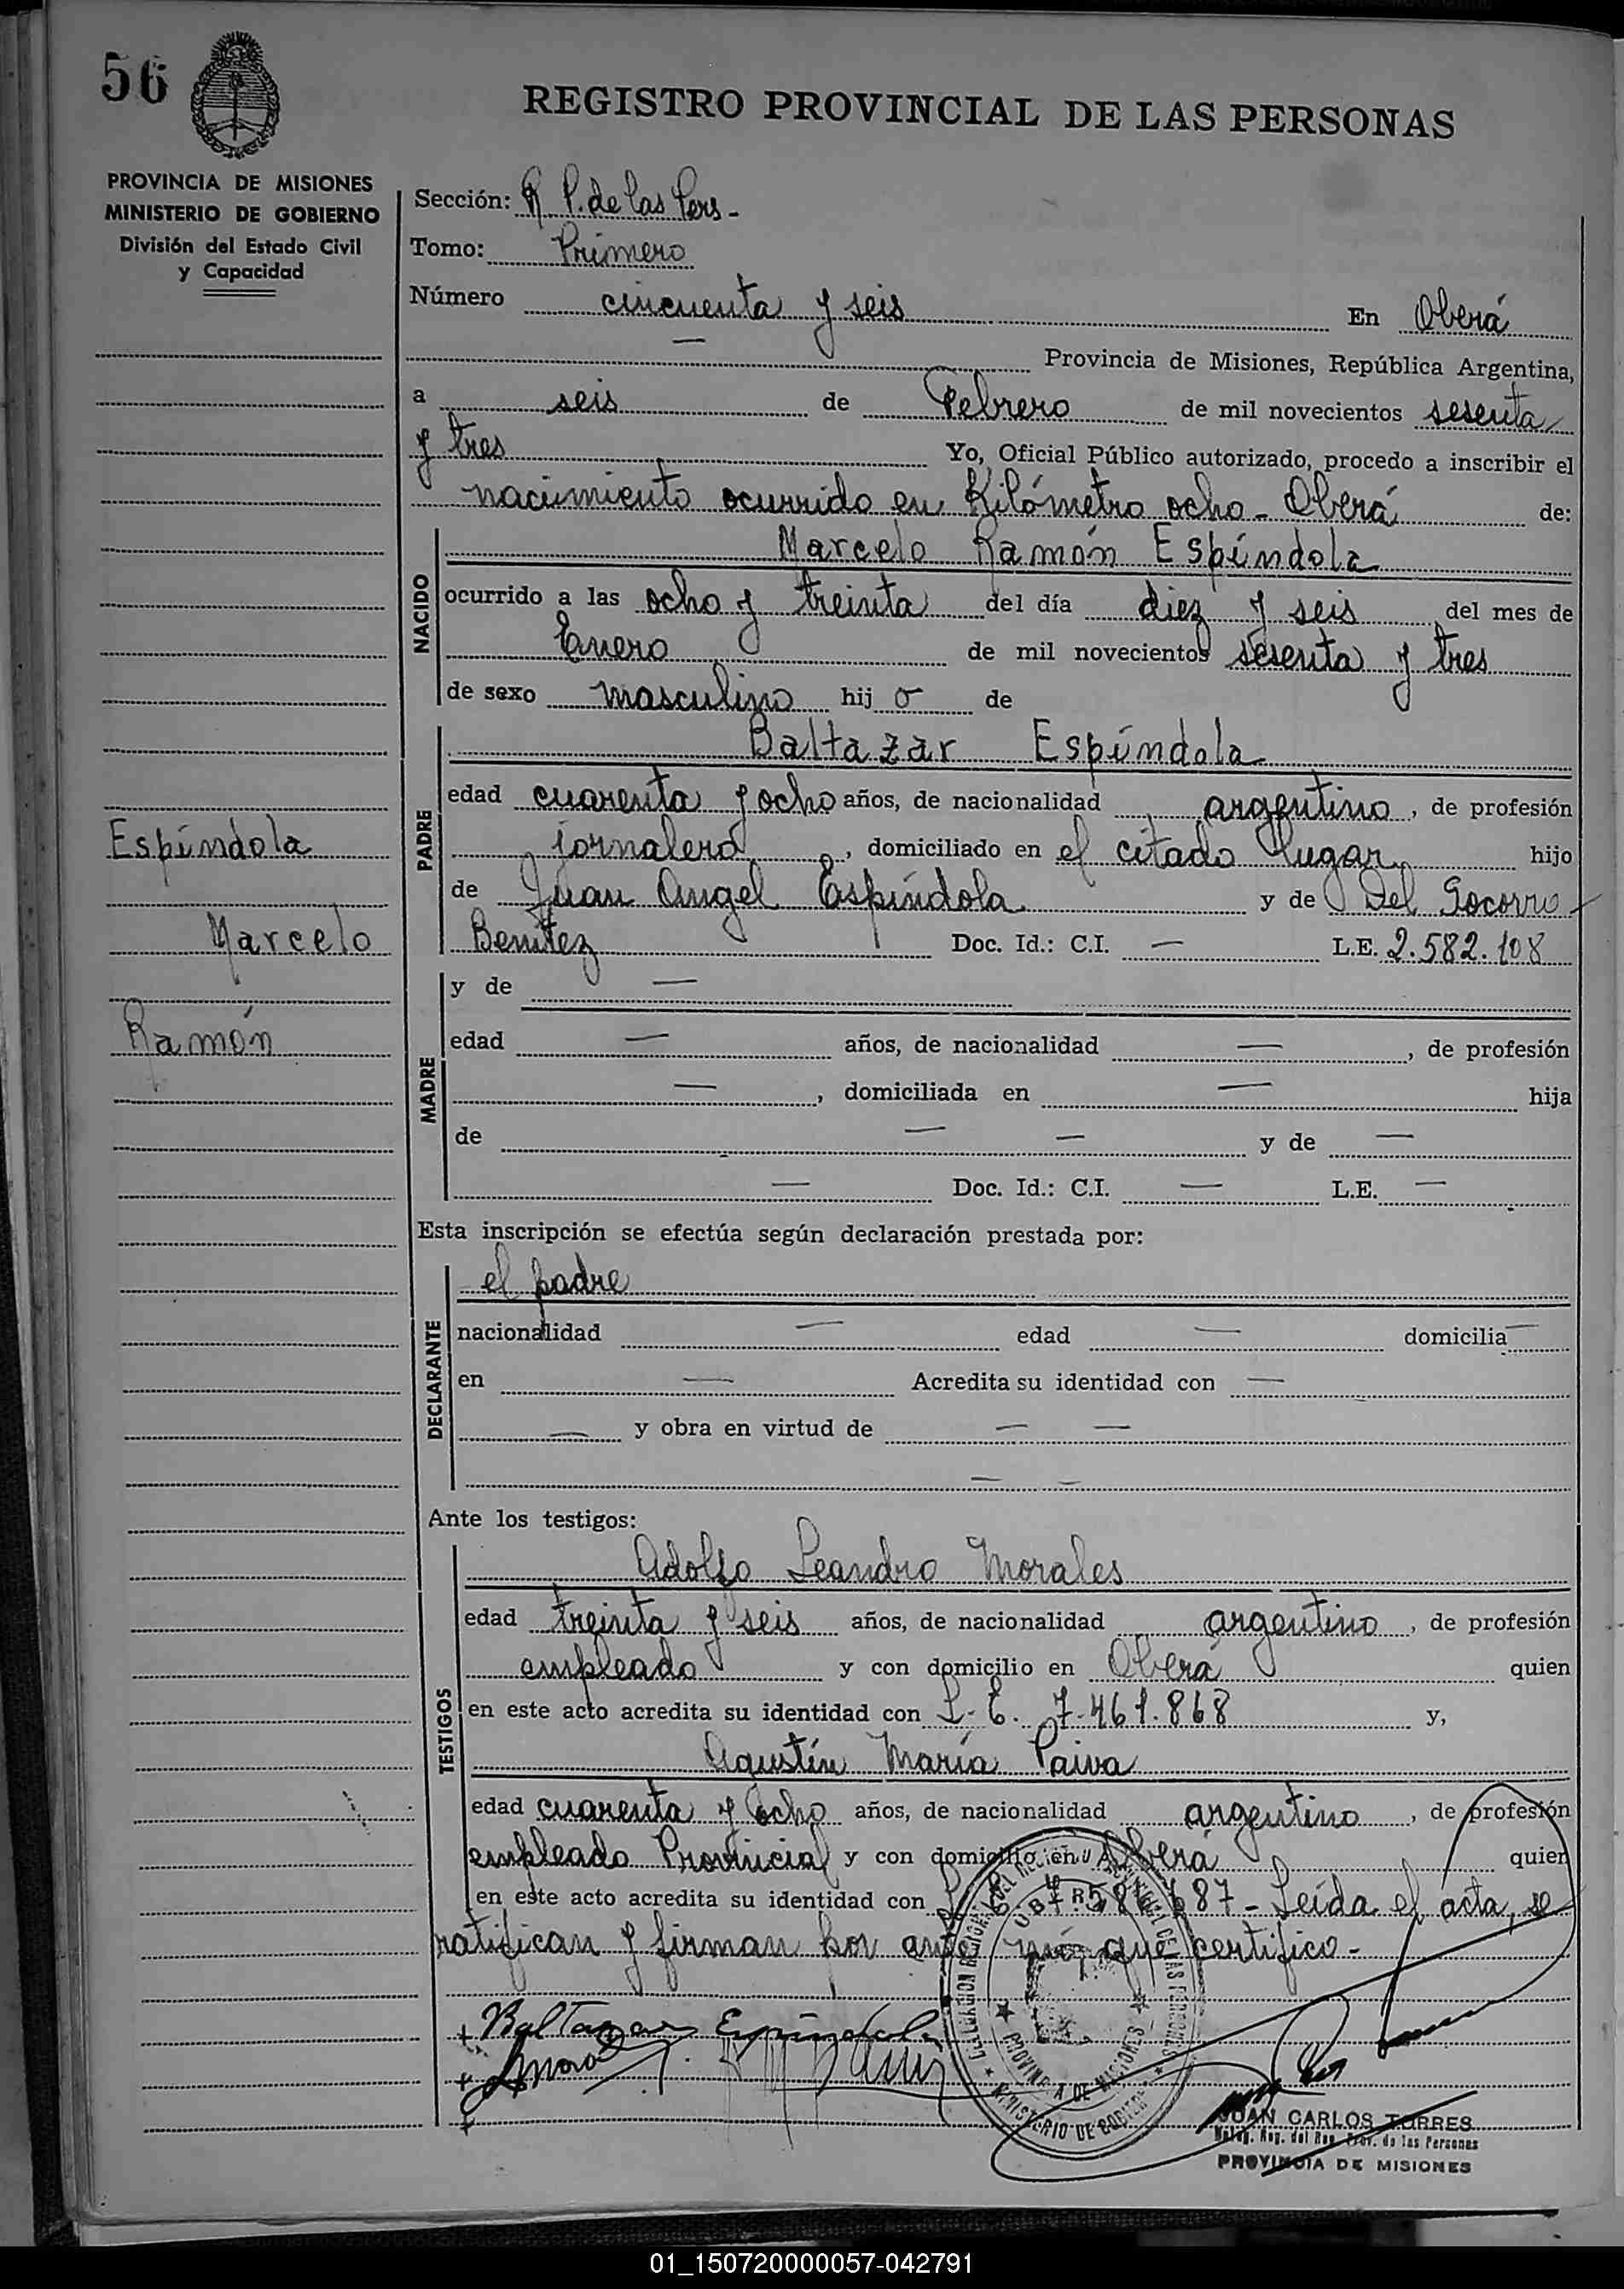 56
REGISTRO PROVINCIAL DE LAS PERSONAS
PROVINCIA DE MISIONES
MINISTERIO DE GOBIERNO
División del Estado Civil
y Capacidad
Sección: R. P. de las Pers -
Tomo: Primero
Número cincuenta y seis En Oberá
— Provincia de Misiones, República Argentina,
a seis de Febrero de mil novecientos sesenta
y tres Yo, Oficial Público autorizado, procedo a inscribir el
nacimiento ocurrido en Kilómetro ocho - Oberá de:
NACIDO
Marcelo Ramón Espíndola
ocurrido a las ocho y treinta del día diez y seis del mes de
Enero de mil novecientos sesenta y tres
de sexo masculino hij o de
PADRE
Baltazar Espíndola
edad cuarenta y ocho años, de nacionalidad argentino, de profesión
jornalero, domiciliado en el citado lugar hijo
de Juan Angel Espíndola y de Del Socorro
Benítez Doc. Id.: C.I. — L.E. 2.582.108
Espíndola
Marcelo
Ramón
MADRE
y de —
edad — años, de nacionalidad —, de profesión
—, domiciliada en — hija
de — — y de —
— Doc. Id.: C.I. — L.E. —
Esta inscripción se efectúa según declaración prestada por:
DECLARANTE
el padre
nacionalidad — edad — domicilia —
en — Acredita su identidad con —
— y obra en virtud de — —
— —
Ante los testigos:
TESTIGOS
Adolfo Leandro Morales
edad treinta y seis años, de nacionalidad argentino, de profesión
empleado y con domicilio en Oberá quien
en este acto acredita su identidad con L. E. 7.461.868 y,
Agustín María Paiva
edad cuarenta y ocho años, de nacionalidad argentino, de profesión
empleado Provincial y con domicilio en Oberá quien
en este acto acredita su identidad con 87 - Leída el acta, se
ratifican y firman por ante mí que certifico -
+ Baltazar Espíndola
+
+
PROVINCIA DE MISIONES
MINISTERIO DE GOBIERNO
JUAN CARLOS TORRES
Prov. de las Personas
PROVINCIA DE MISIONES
01_150720000057-042791